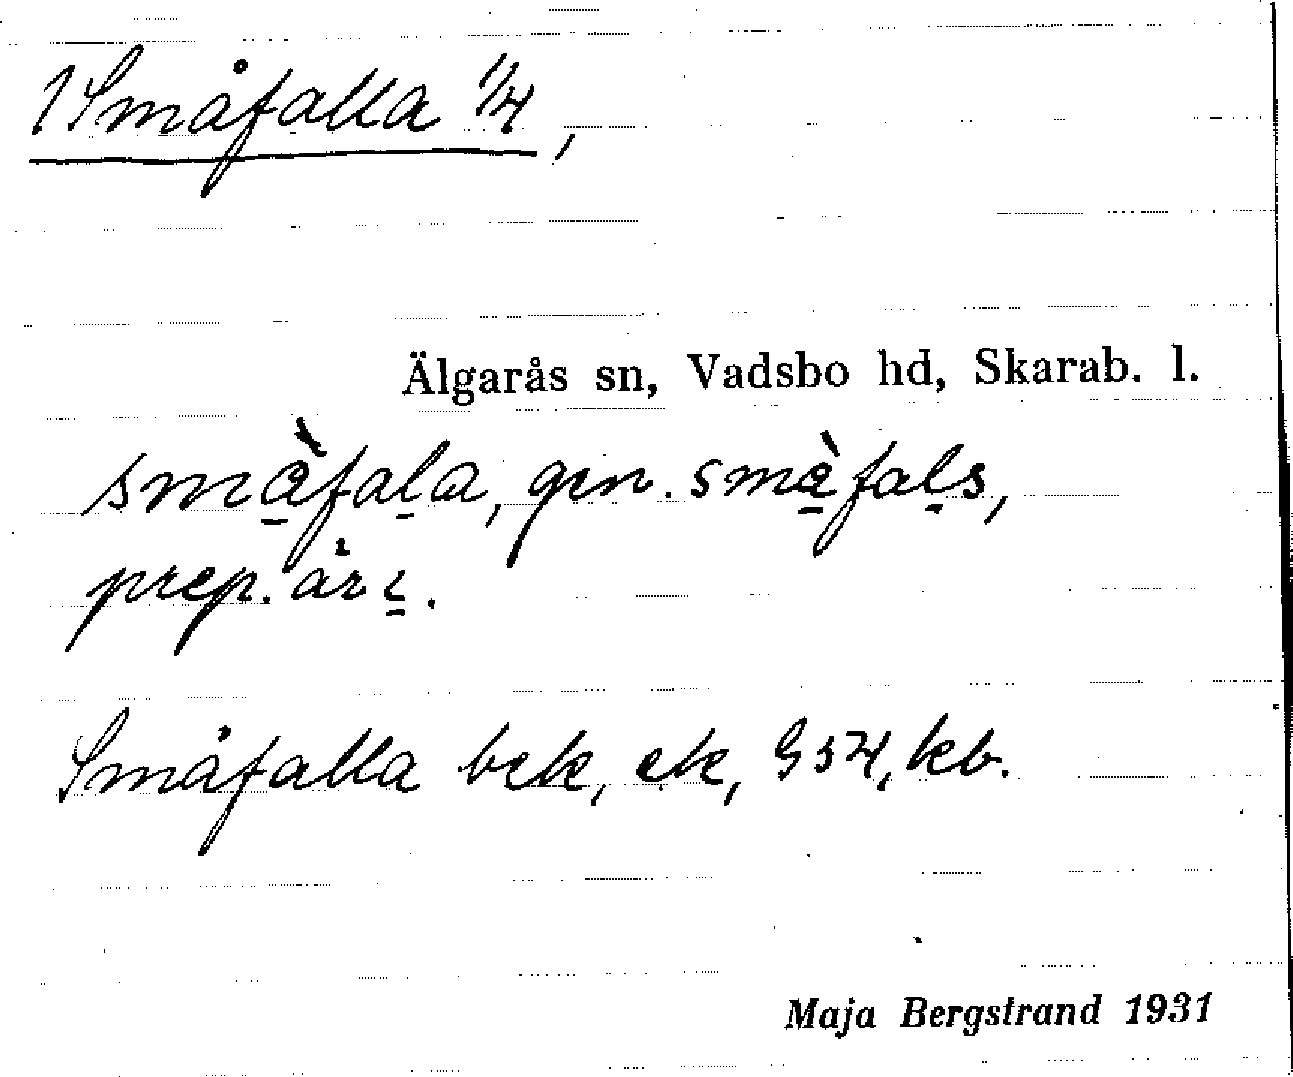 1 Småfalla 1/4,
Älgarås sn, Vadsbo hd, Skarab. l.
småfala, gen. småfals,
prep. å r i.
Småfalla bek, ek, G 54, kb.
Maja Bergstrand 1931